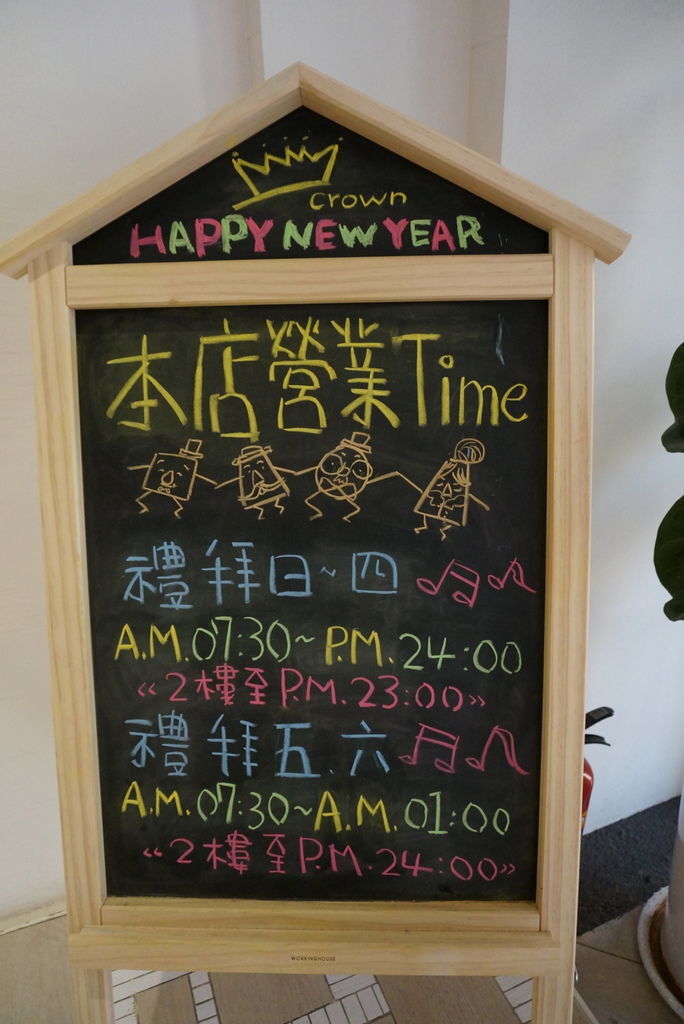 crown
HAPPY NEW YEAR
本店營業Time
禮拜日~四
A.M.07:30~P.M.24:00
“2樓至P.M.23:00”
禮拜五.六
A.M.07:30~A.M.01:00
“2樓至P.M.24:00”
WORKINGHOUSE